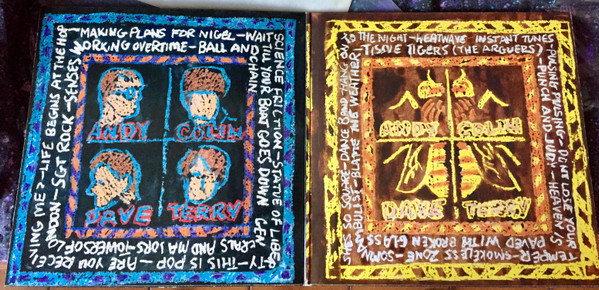 SCIENCE FRICTION-STATUE OF LIBE
RTY-THIS IS POP-ARE YOU RECEI
VING ME?-LIFE BEGINS AT THE HOP
MAKING PLANS FOR NIGEL-WAIT
TILL YOUR BOAT GOES DOWN-GEN
ERALS AND MAJORS-TOWERS OF
LONDON-SGT ROCK-SENSES W
ORKING OVERTIME-BALL AND
CHAIN
ANDY COLIN
DAVE TERRY
SHES SO SQUARE-DANCE BAND-HANG ON TO
THE NIGHT-HEATWAVE INSTANT TUNES
-PULSING PULSING-DONT LOSE YOUR
TEMPER-SMOKELESS ZONE-SOMN
AMBULIST-BLAME THE WEATHER
TISSUE TIGERS (THE ARGUERS)
-PUNCH AND JUDY-HEAVEN IS
PAVED WITH BROKEN GLASS
ANDY COLIN
DAVE TERRY